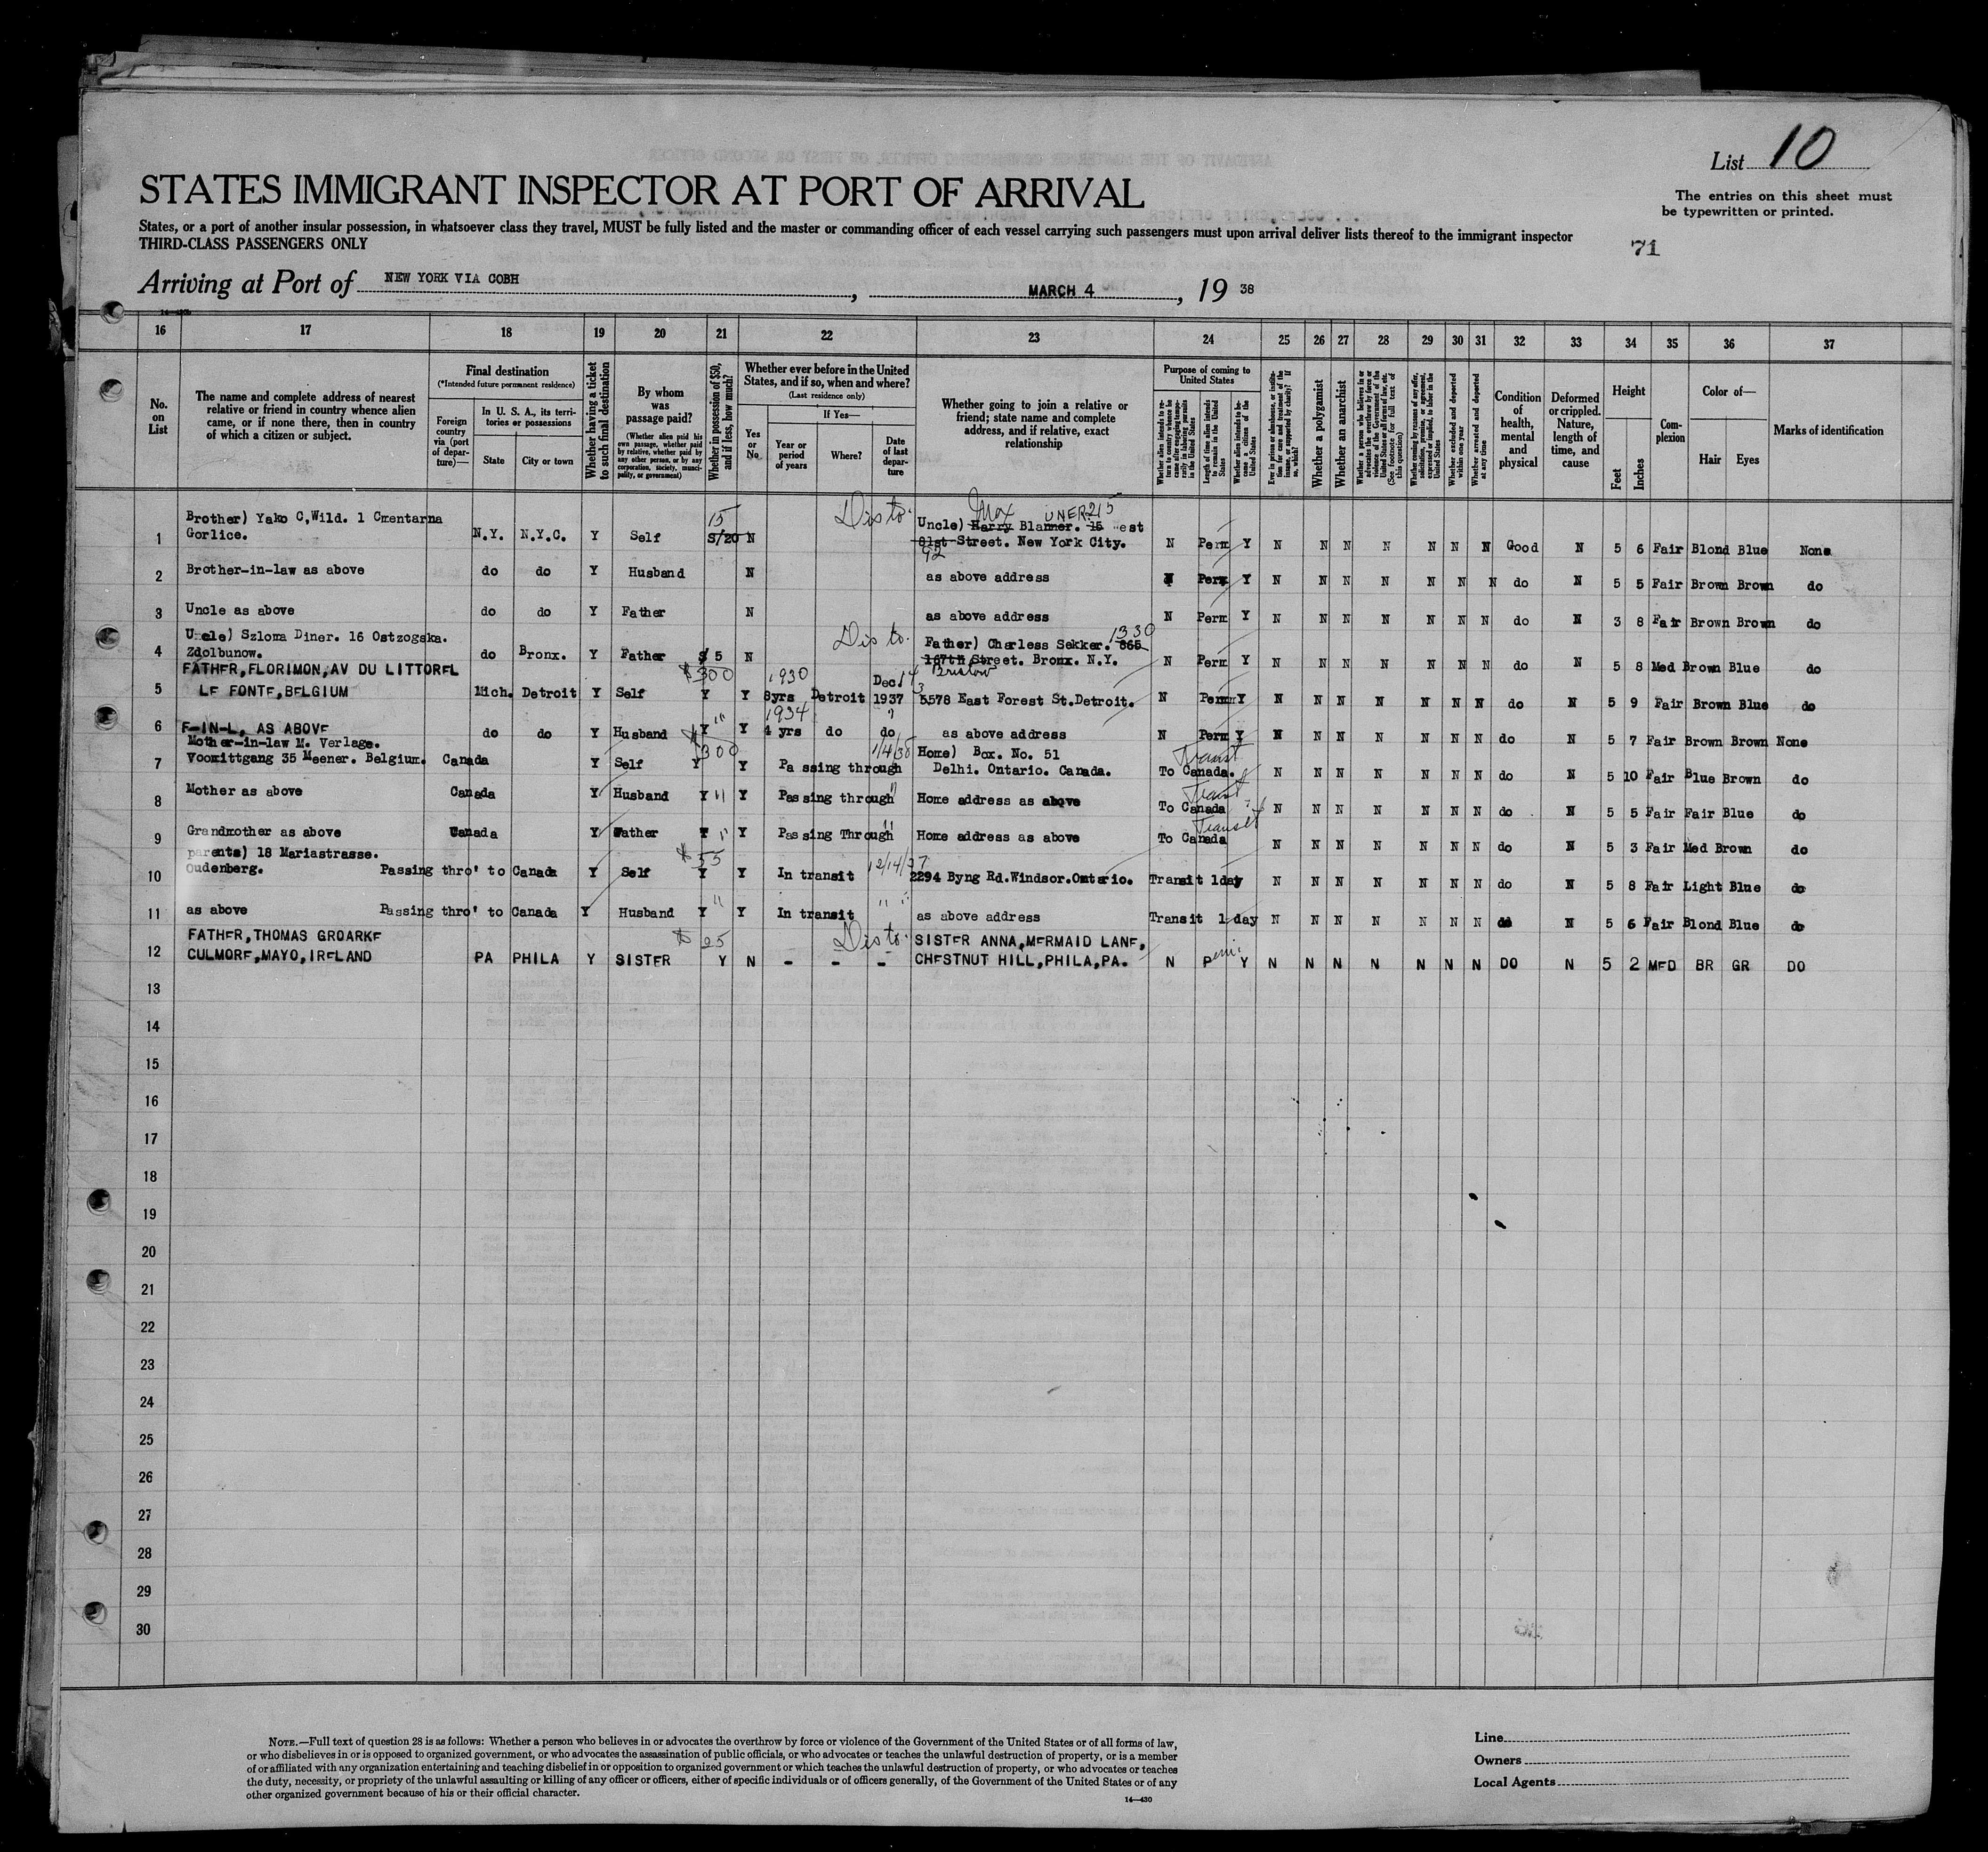 List 10
STATES IMMIGRANT INSPECTOR AT PORT OF ARRIVAL
The entries on this sheet must
be typewritten or printed.
States, or a port of another insular possession, in whatsoever class they travel, MUST be fully listed and the master or commanding officer of each vessel carrying such passengers must upon arrival deliver lists thereof to the immigrant inspector
THIRD-CLASS PASSENGERS ONLY
71
Arriving at Port of NEW YORK VIA COBH, MARCH 4, 19 38
16 17 18 19 20 21 22 23 24 25 26 27 28 29 30 31 32 33 34 35 36 37
No. on List
The name and complete address of nearest relative or friend in country whence alien came, or if none there, then in country of which a citizen or subject.
Final destination
(*Intended future permanent residence)
Foreign country via (port of departure)—
In U. S. A., its territories or possessions
State
City or town
Whether having a ticket to such final destination
By whom was passage paid?
(Whether alien paid his own passage, whether paid by relative, whether paid by any other person, or by any corporation, society, municipality, or government)
Whether in possession of $50, and if less, how much?
Whether ever before in the United States, and if so, when and where?
(Last residence only)
Yes or No
If Yes—
Year or period of years
Where?
Date of last departure
Whether going to join a relative or friend; state name and complete address, and if relative, exact relationship
Purpose of coming to United States
Whether alien intends to return to country whence he came after engaging temporarily in laboring pursuits in the United States
Length of time alien intends to remain in the United States
Whether alien intends to become a citizen of the United States
Ever in prison or almshouse, or institution for care and treatment of the insane, or supported by charity? If so, which?
Whether a polygamist
Whether an anarchist
Whether a person who believes in or advocates the overthrow by force or violence of the Government of the United States or all forms of law, etc. (See footnote for full text of this question)
Whether coming by reason of any offer, solicitation, promise, or agreement, expressed or implied, to labor in the United States
Whether excluded and deported within one year
Whether arrested and deported at any time
Condition of health, mental and physical
Deformed or crippled. Nature, length of time, and cause
Height
Feet
Inches
Complexion
Color of—
Hair
Eyes
Marks of identification
Brother) Yako C,Wild. 1 Cmentarna 15 Dis to. Max UNER 215
1 Gorlice. N.Y. N.Y.C. Y Self S/20 N Uncle) Harry Blanner. 15 West
81st Street. New York City. N Perm Y N N N N N N N Good N 5 6 Fair Blond Blue None
92
2 Brother-in-law as above do do Y Husband N as above address N Perm Y N N N N N N N do N 5 5 Fair Brown Brown do
3 Uncle as above do do Y Father N as above address N Perm Y N N N N N N N do N 3 8 Fair Brown Brown do
Uncle) Szloma Diner. 16 Ostzogska. Dis to. Father) Charless Sekker. 1330 865
4 Zdolbunow. do Bronx. Y Father $ 5 N 167th Street. Bronx. N.Y. N Perm Y N N N N N N N do N 5 8 Med Brown Blue do
Bristow
FATHER,FLORIMON,AV DU LITTOREL $300 1930 Dec 14
5 LE FONTE,BELGIUM Mich. Detroit Y Self Y Y 8yrs Detroit 1937 5578 East Forest St.Detroit. N Perm Y N N N N N N N do N 5 9 Fair Brown Blue do
1934
6 F-IN-L, AS ABOVE do do Y Husband Y " Y 4 yrs do do as above address N Perm Y N N N N N N N do N 5 7 Fair Brown Brown None
Mother-in-law M. Verlage. $300 1/4/38 Home) Box. No. 51 Transit
7 Voomittgang 35 Meener. Belgium. Canada Y Self Y Y Passing through Delhi. Ontario. Canada. To Canada. N N N N N N N do N 5 10 Fair Blue Brown do
Transit
8 Mother as above Canada Y Husband Y " Y Passing through " Home address as above To Canada N N N N N N N do N 5 5 Fair Fair Blue do
Transit
9 Grandmother as above Canada Y Father Y " Y Passing Through " Home address as above To Canada N N N N N N N do N 5 3 Fair Med Brown do
parents) 18 Mariastrasse. $55 12/14/37
10 Oudenberg. Passing thro' to Canada Y Self Y Y In transit 2294 Byng Rd.Windsor.Ontario. Transit 1day N N N N N N N do N 5 8 Fair Light Blue do
11 as above Passing thro' to Canada Y Husband Y " Y In transit " " as above address Transit 1 day N N N N N N N do N 5 6 Fair Blond Blue do
FATHER,THOMAS GROARKE $ 25 Dis to. SISTER ANNA,MERMAID LANE,
12 CULMORE,MAYO,IRELAND PA PHILA Y SISTER Y N - - - CHESTNUT HILL,PHILA,PA. N Perm. Y N N N N N N N DO N 5 2 MED BR GR DO
13
14
15
16
17
18
19
20
21
22
23
24
25
26
27
28
29
30
NOTE.—Full text of question 28 is as follows: Whether a person who believes in or advocates the overthrow by force or violence of the Government of the United States or of all forms of law,
or who disbelieves in or is opposed to organized government, or who advocates the assassination of public officials, or who advocates or teaches the unlawful destruction of property, or is a member
of or affiliated with any organization entertaining and teaching disbelief in or opposition to organized government or which teaches the unlawful destruction of property, or who advocates or teaches
the duty, necessity, or propriety of the unlawful assaulting or killing of any officer or officers, either of specific individuals or of officers generally, of the Government of the United States or of any
other organized government because of his or their official character.
14—430
Line
Owners
Local Agents